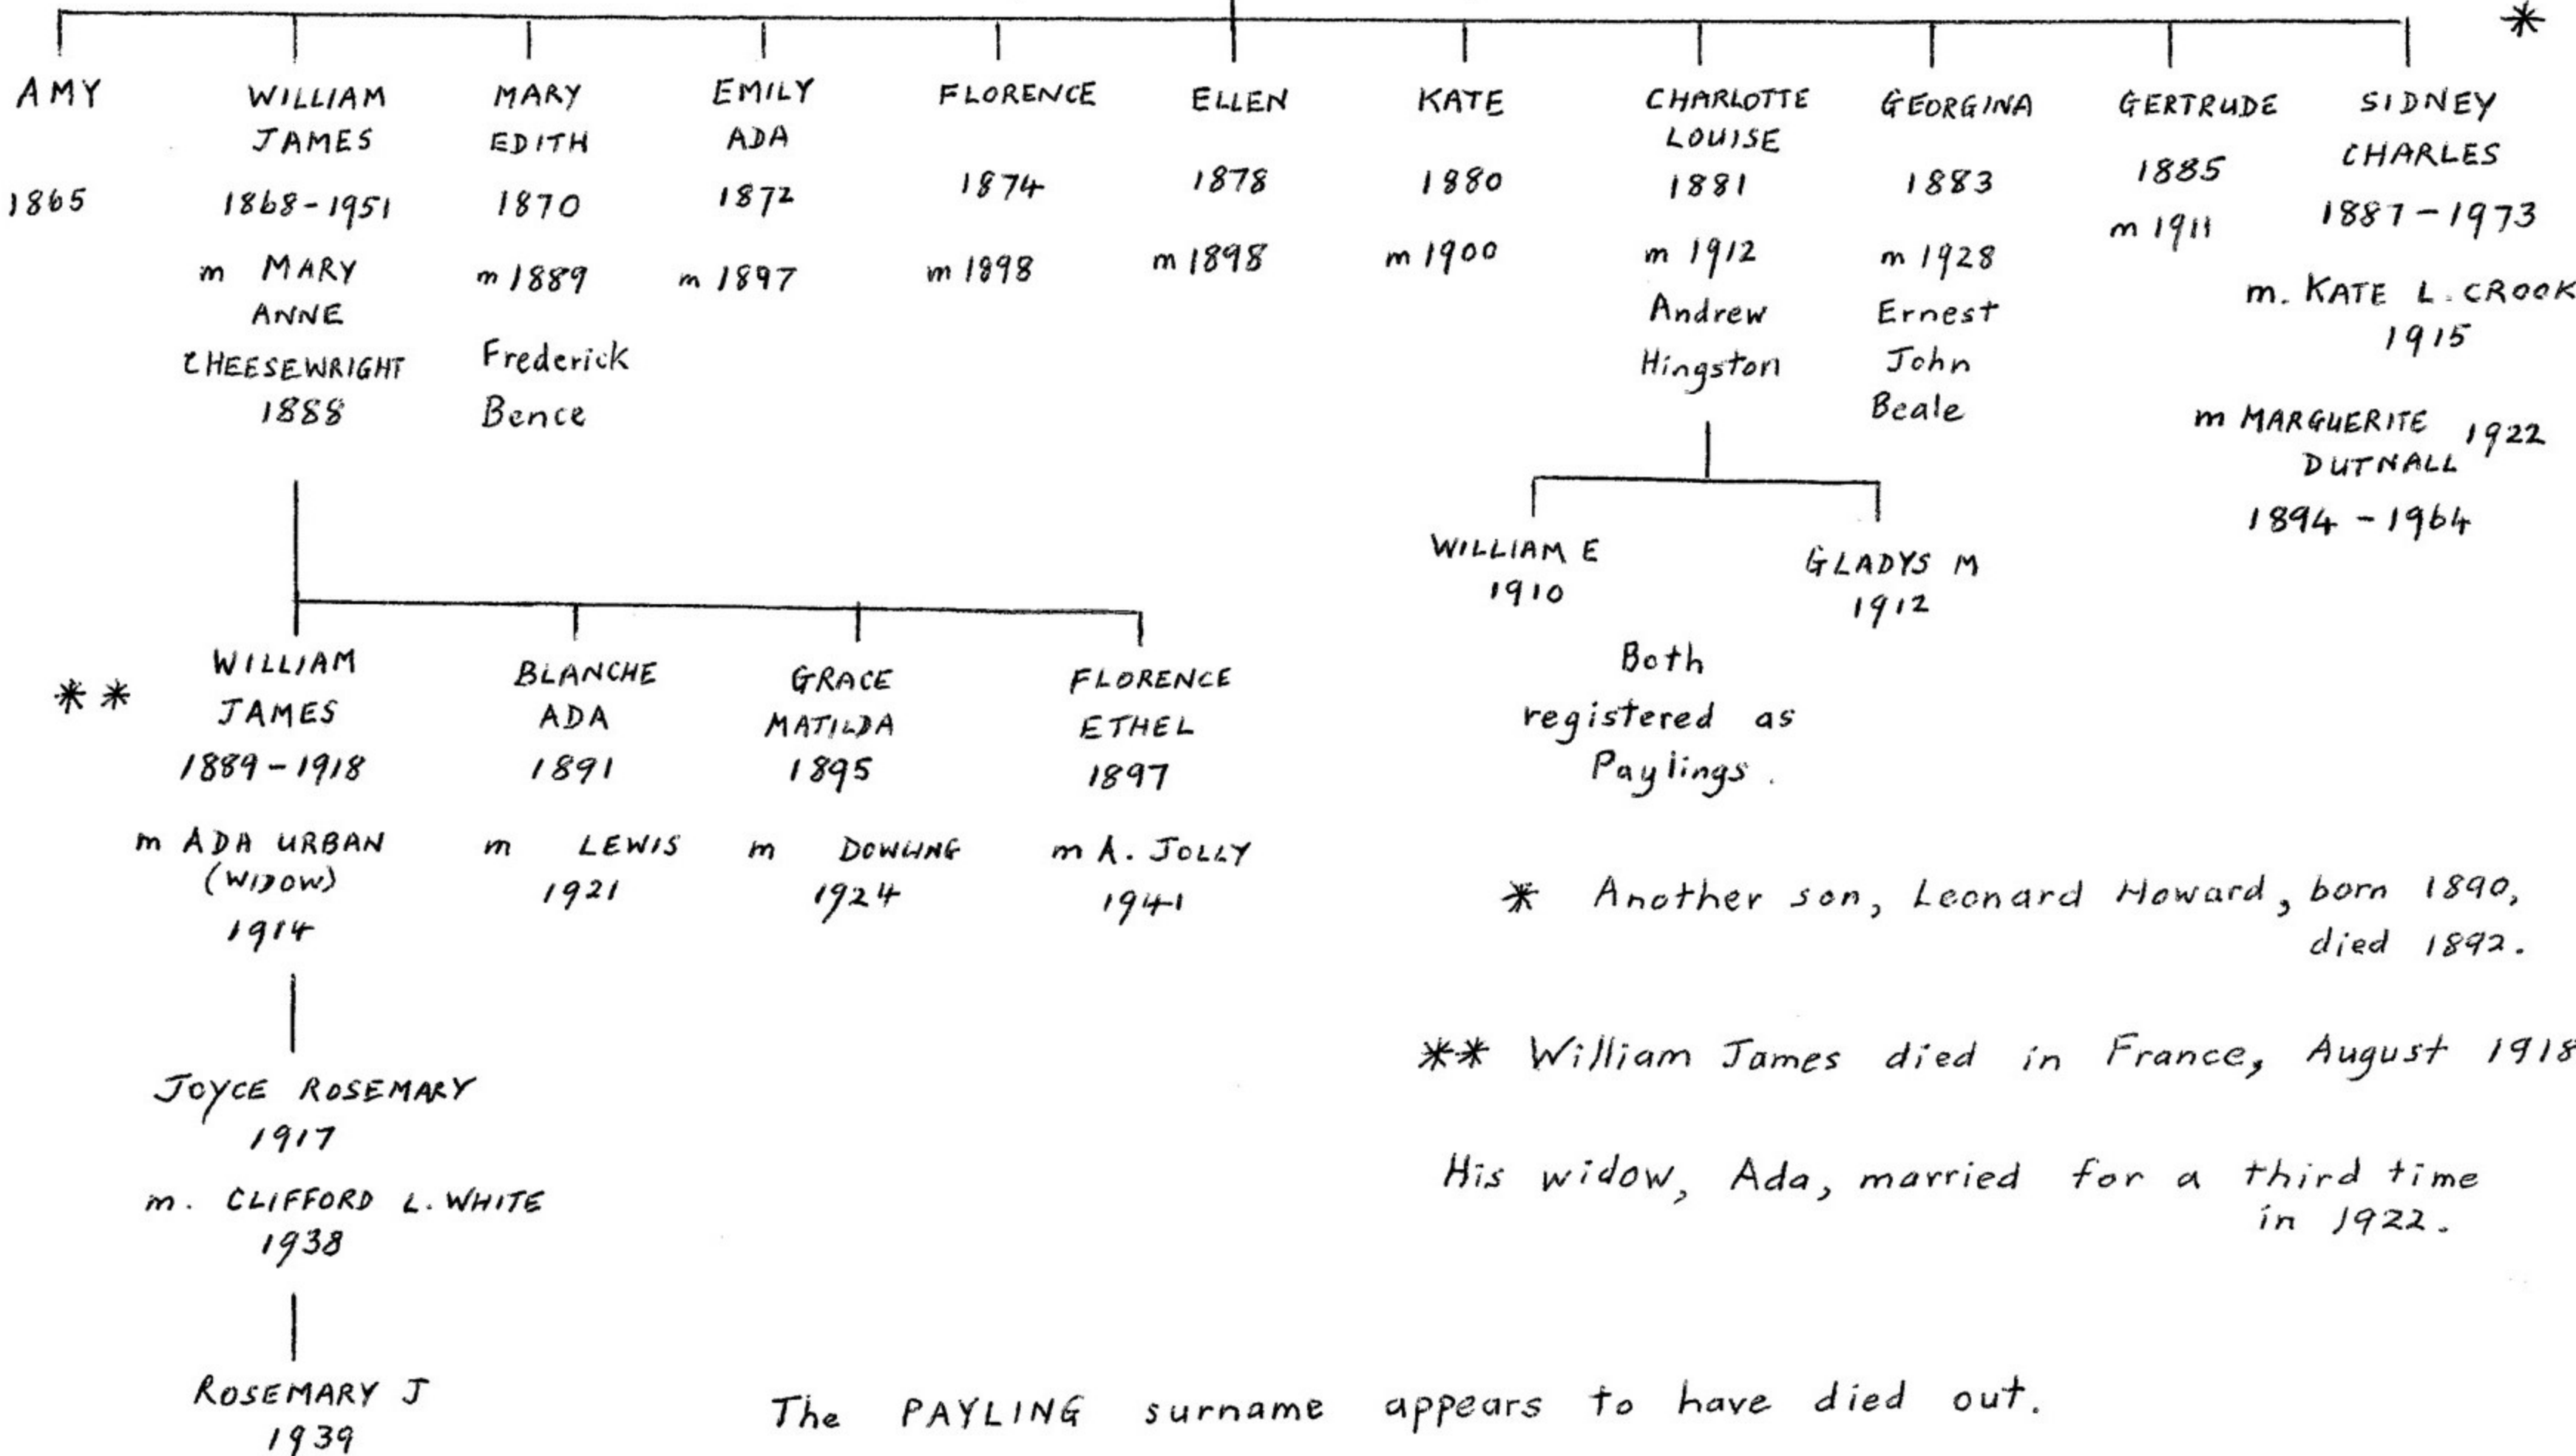 *
AMY
1865
WILLIAM
JAMES
1868-1951
m MARY
ANNE
CHEESEWRIGHT
1888
MARY
EDITH
1870
m 1889
Frederick
Bence
EMILY
ADA
1872
m 1897
FLORENCE
1874
m 1898
ELLEN
1878
m 1898
KATE
1880
m 1900
CHARLOTTE
LOUISE
1881
m 1912
Andrew
Hingston
GEORGINA
1883
m 1928
Ernest
John
Beale
GERTRUDE
1885
m 1911
SIDNEY
CHARLES
1887-1973
m. KATE L. CROOK
1915
m MARGUERITE 1922
DUTNALL
1894-1964
WILLIAM E
1910
GLADYS M
1912
Both
registered as
Paylings.
**
WILLIAM
JAMES
1889-1918
m ADA URBAN
(WIDOW)
1914
BLANCHE
ADA
1891
m LEWIS
1921
GRACE
MATILDA
1895
m DOWLING
1924
FLORENCE
ETHEL
1897
m A. JOLLY
1941
JOYCE ROSEMARY
1917
m. CLIFFORD L. WHITE
1938
ROSEMARY J
1939
* Another son, Leonard Howard, born 1890,
died 1892.
** William James died in France, August 1918
His widow, Ada, married for a third time
in 1922.
The PAYLING surname appears to have died out.